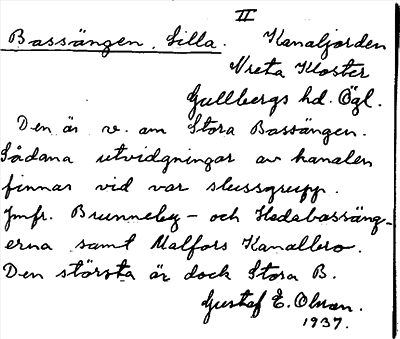 II
Bassängen, Lilla. Kanaljorden
Vreta Kloster
Gullbergs hd. Ögl.
Den är v. om Stora Bassängen.
Sådana utvidgningar av kanalen
finnas vid var slussgrupp.
Jmfr. Brunneby- och Hedabassäng-
erna samt Malfors Kanalbro.
Den största är dock Stora B.
Gustaf E. Olsson.
1937.